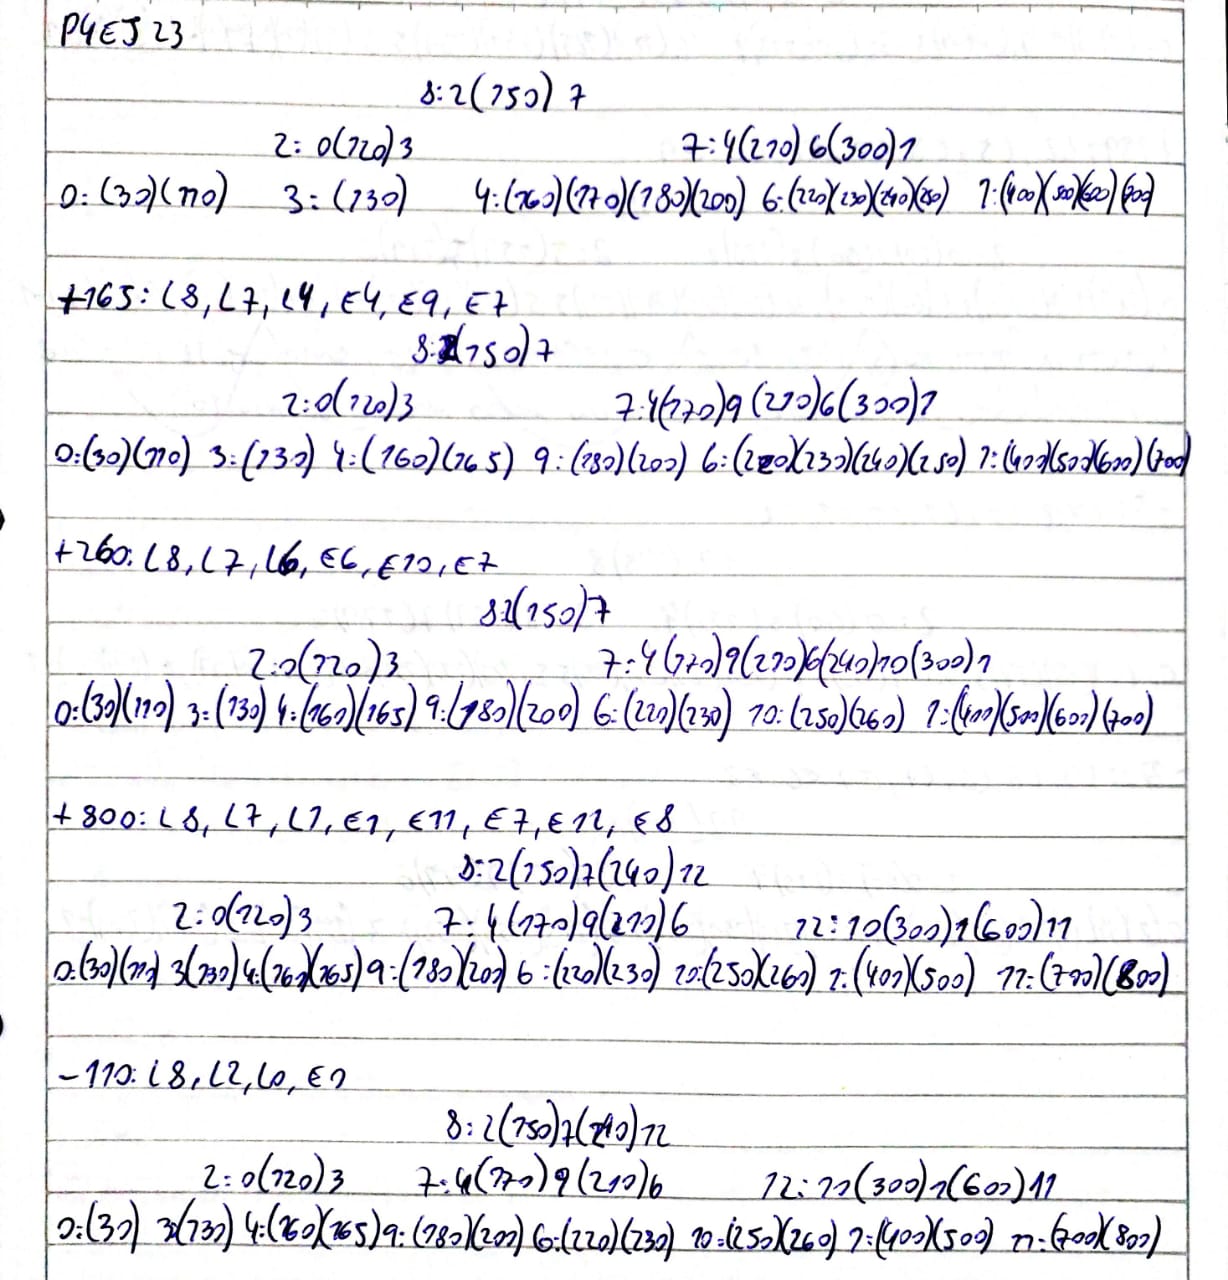 P4EJ23
8:2(150)7
2:0(120)3 7:4(210)6(300)1
0:(30)(110) 3:(130) 4:(160)(170)(180)(200) 6:(220)(230)(240)(250) 1:(400)(500)(600)(700)
+165: L8, L7, L4, E4, E9, E7
8:2(150)7
2:0(120)3 7:4(170)9(210)6(300)1
0:(30)(110) 3:(130) 4:(160)(165) 9:(180)(200) 6:(220)(230)(240)(250) 1:(400)(500)(600)(700)
+260: L8, L7, L6, E6, E10, E7
8:2(150)7
2:0(120)3 7:4(170)9(210)6(240)10(300)1
0:(30)(110) 3:(130) 4:(160)(165) 9:(180)(200) 6:(220)(230) 10:(250)(260) 1:(400)(500)(600)(700)
+800: L8, L7, L1, E1, E11, E7, E12, E8
8:2(150)7(240)12
2:0(120)3 7:4(170)9(210)6 12:10(300)1(600)11
0:(30)(110) 3(130) 4:(160)(165) 9:(180)(200) 6:(220)(230) 10:(250)(260) 1:(400)(500) 11:(700)(800)
-110: L8, L2, L0, E0
8:2(150)7(240)12
2:0(120)3 7:4(170)9(210)6 12:10(300)1(600)11
0:(30) 3(130) 4:(160)(165) 9:(180)(200) 6:(220)(230) 10:(250)(260) 1:(400)(500) 11:(700)(800)